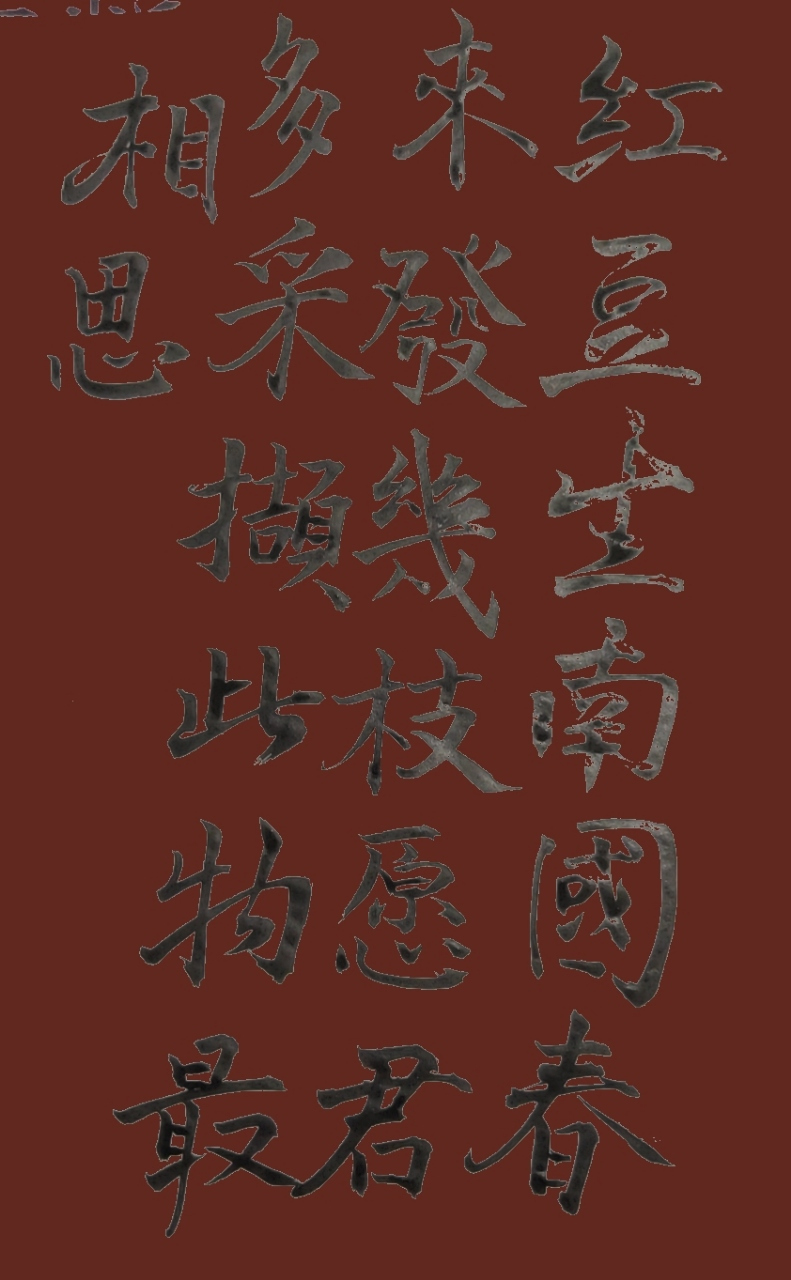 紅豆生南國春
來發幾枝愿君
多采擷此物最
相思